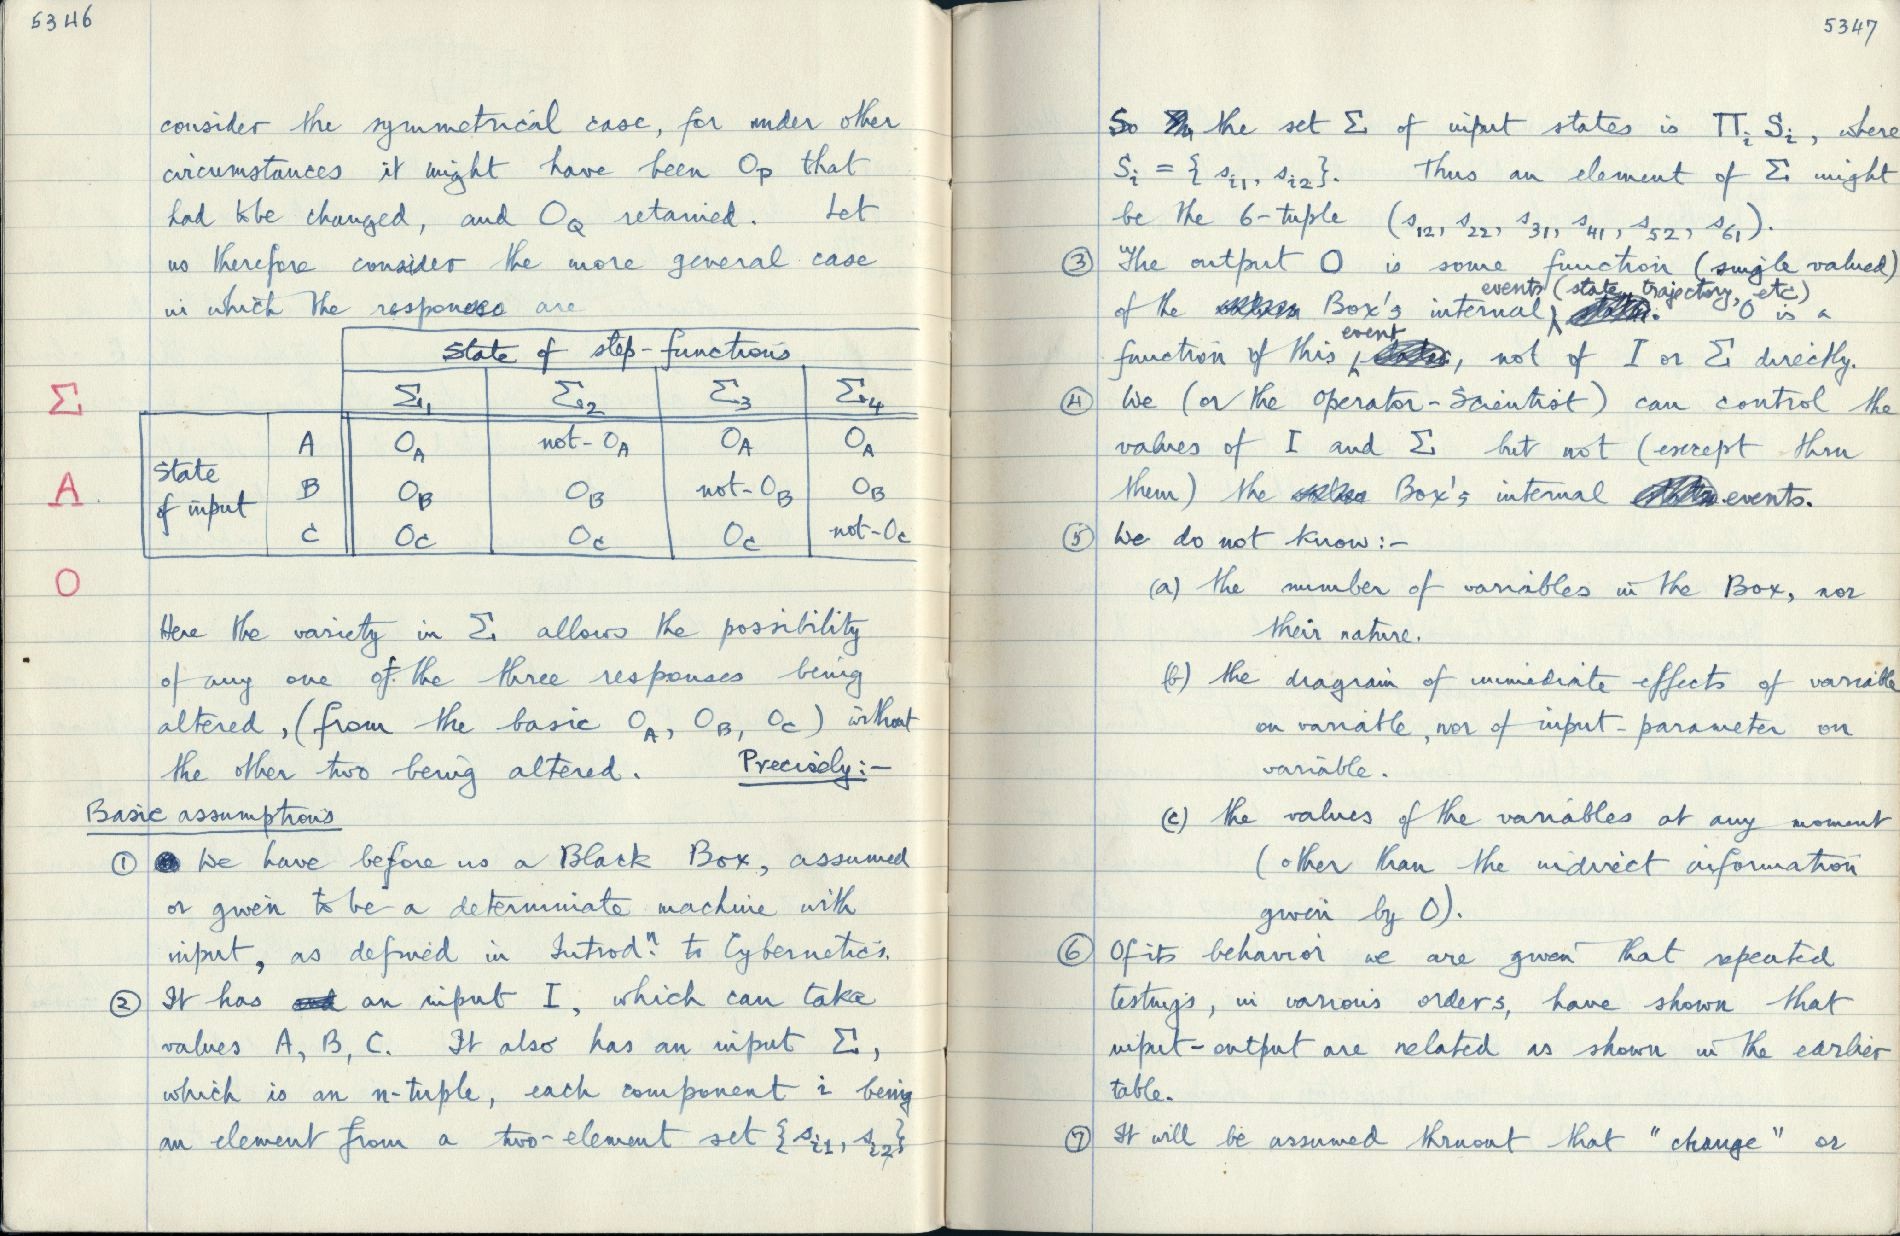 5346
consider the symmetrical case, for under other
circumstances it might have been O_P that
had to be changed, and O_Q retained. Let
us therefore consider the more general case
in which the responses are
State of step-functions
Σ₁ Σ₂ Σ₃ Σ₄
Σ
State of input
A O_A not-O_A O_A O_A
A
B O_B O_B not-O_B O_B
C O_C O_C O_C not-O_C
O
Here the variety in Σ allows the possibility
of any one of the three responses being
altered, (from the basic O_A, O_B, O_C) without
the other two being altered. Precisely:-
Basic assumptions
① We have before us a Black Box, assumed
or given to be a determinate machine with
input, as defined in Introdⁿ. to Cybernetics.
② It has an input I, which can take
values A, B, C. It also has an input Σ,
which is an n-tuple, each component i being
an element from a two-element set {s_i1, s_i2}
5347
So the set Σ of input states is Π_i S_i, where
S_i = {s_i1, s_i2}. Thus an element of Σ might
be the 6-tuple (s_12, s_22, s_31, s_41, s_52, s_61).
③ The output O is some function (single valued)
events (state, trajectory, etc)
of the Box's internal . O is a
event
function of this , not of I or Σ directly.
④ We (or the Operator-Scientist) can control the
values of I and Σ but not (except thru
them) the Box's internal events.
⑤ We do not know:-
(a) the number of variables in the Box, nor
their nature.
(b) the diagram of immediate effects of variable
on variable, nor of input-parameter on
variable.
(c) the values of the variables at any moment
(other than the indirect information
given by O).
⑥ Of its behavior we are given that repeated
testings, in various orders, have shown that
input-output are related as shown in the earlier
table.
⑦ It will be assumed thruout that "change" or